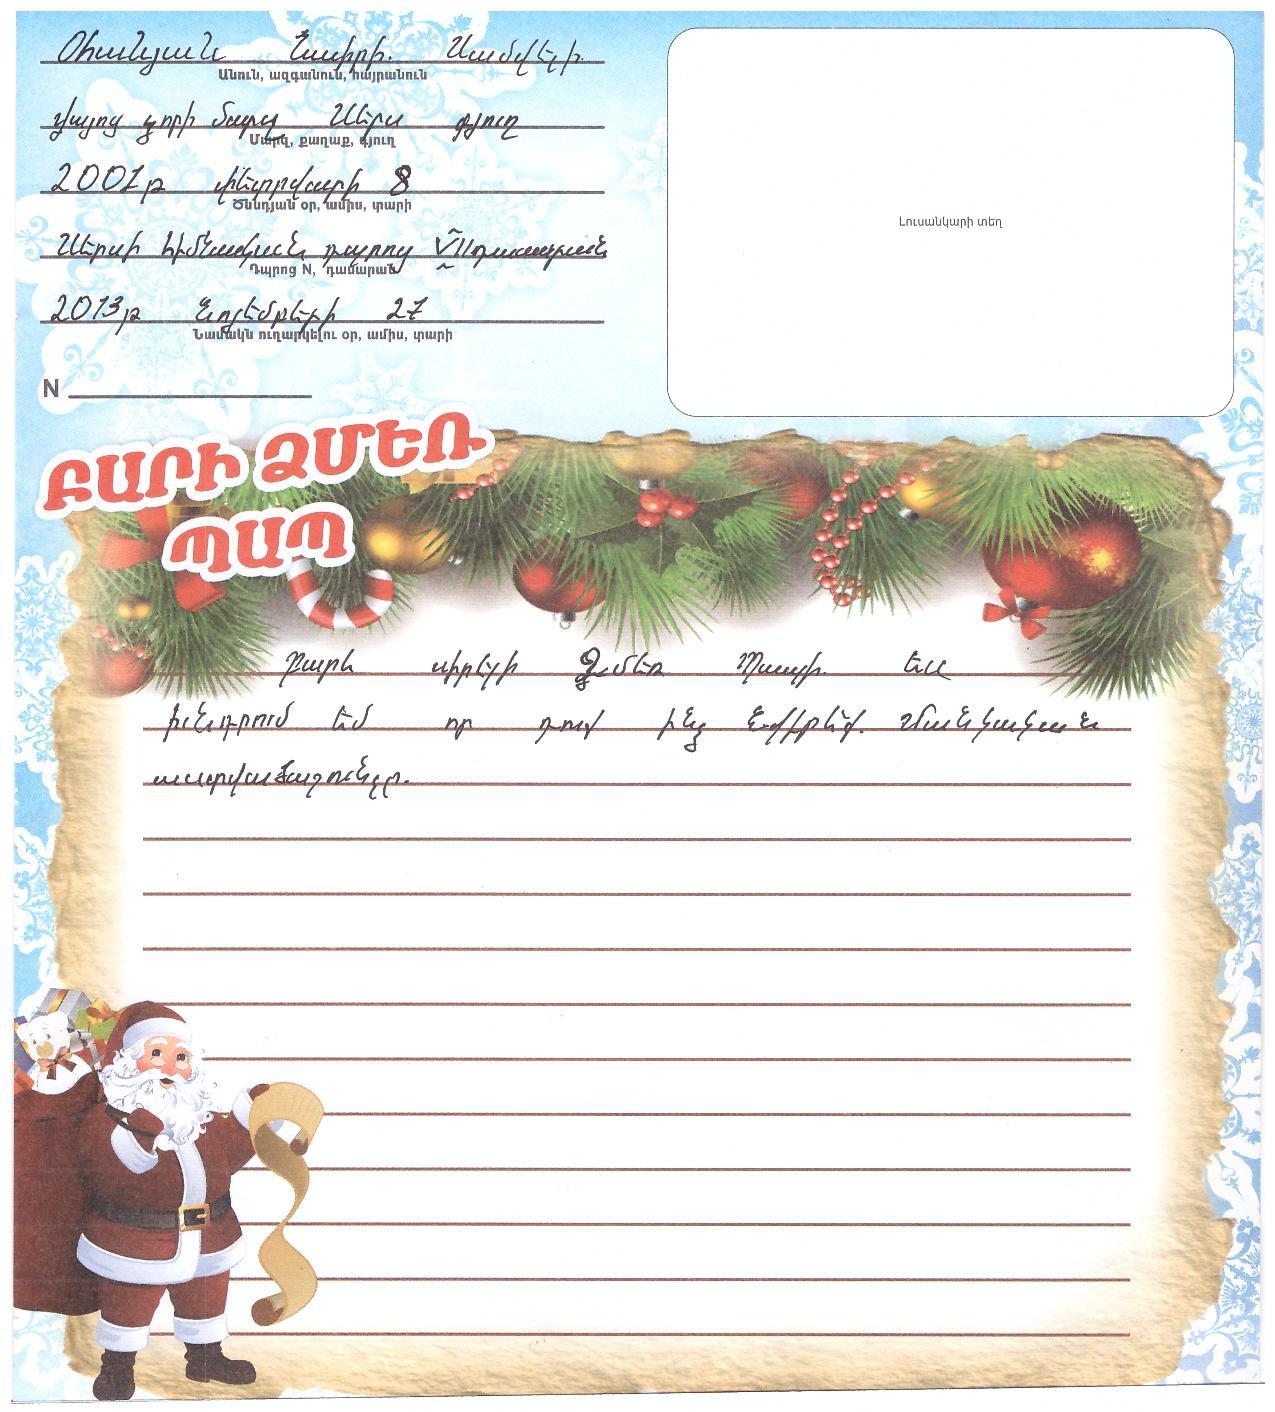 Օհանյան Նաիրի Սամվելի
Անուն, ազգանուն, հայրանուն
Վայոց ձորի մարզ Հերս գյուղ
Մարզ, քաղաք, գյուղ
2001թ փետրվարի 8
Ծննդյան օր, ամիս, տարի
Հերսի հիմնական դպրոց VII դասարան
Դպրոց N, դասարան
2013թ նոյեմբերի 27
Նամակն ուղարկելու օր, ամիս, տարի
N
Լուսանկարի տեղ
ԲԱՐԻ ՁՄԵՌ
ՊԱՊ
Բարև սիրելի Ձմեռ Պապի. ես
խնդրում եմ որ դուք ինձ նվիրեք. մանկական
աստվածաշունչը.